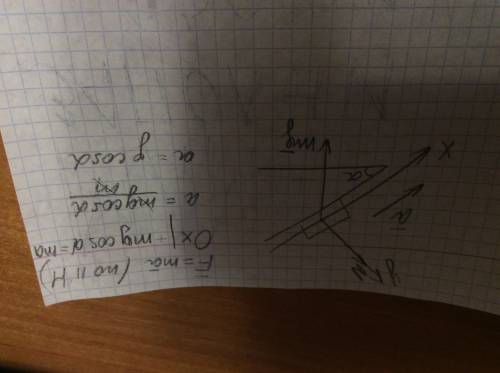 F̄ = mā (по II Н)
Ox| mg cosα = ma
a = mg cosα / m
a = g cosα
y
N̄
ā
α
x
mḡ